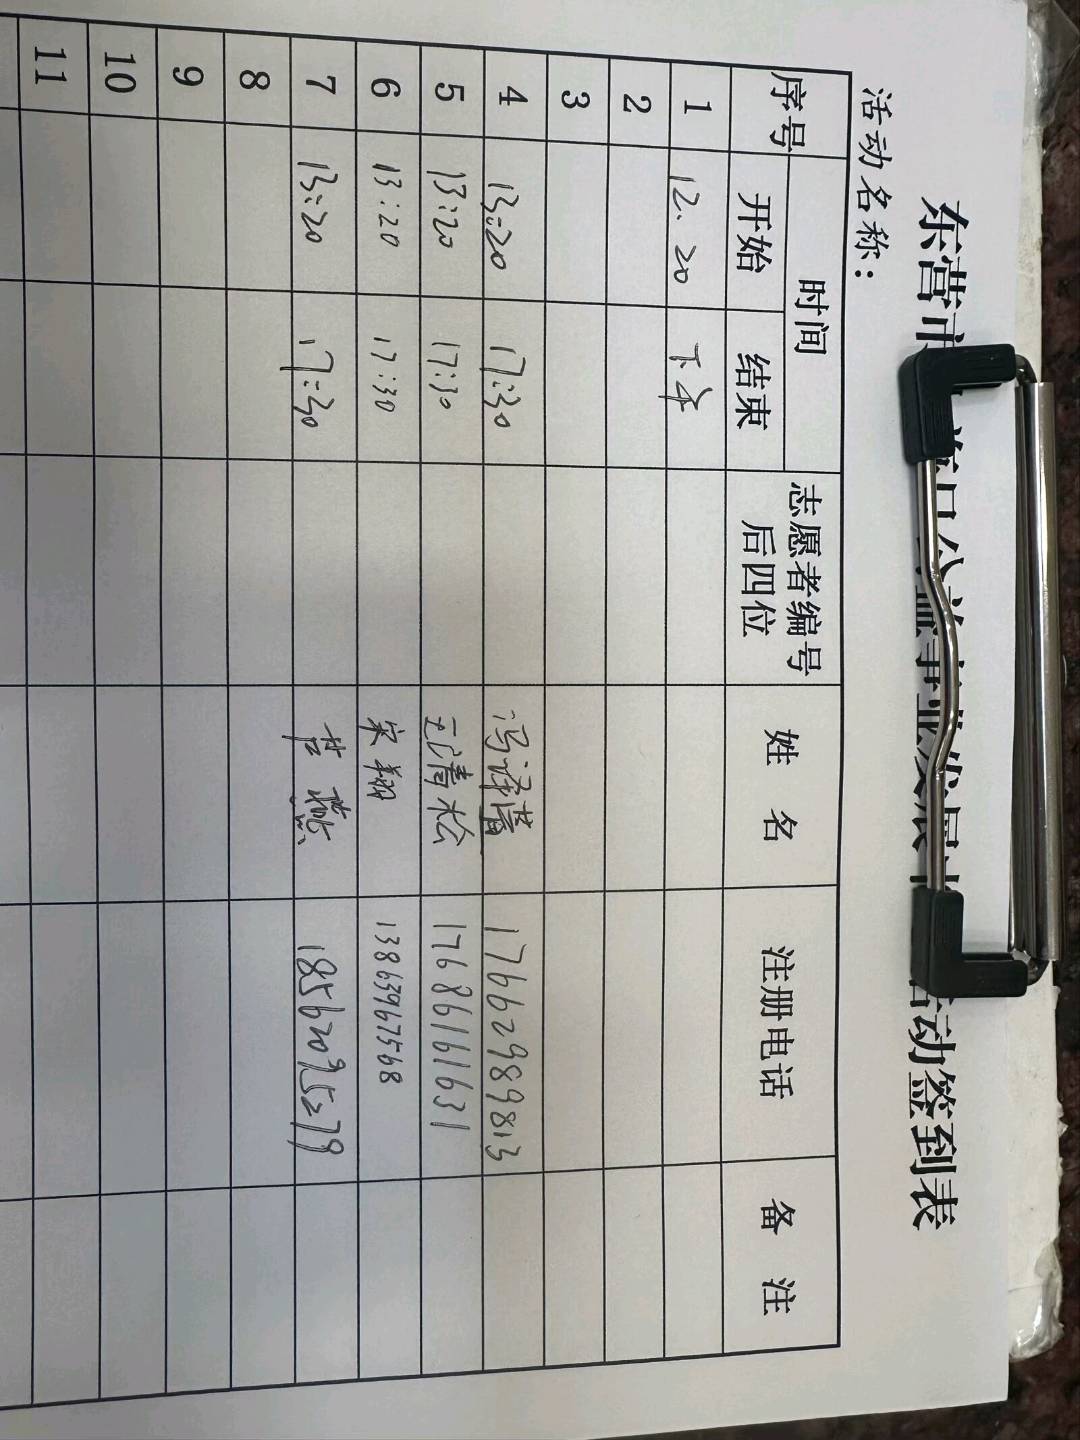 东营市
公益事业发展中
活动签到表
活动名称：
序号 时间 志愿者编号后四位 姓 名 注册电话 备 注
开始 结束
1 12.20 下午
2
3
4 13:20 17:30 17662989813
5 13:20 17:30 清松 17686161631
6 13:20 17:30 宋翔 13863967568
7 13:20 17:30 18562095279
8
9
10
11